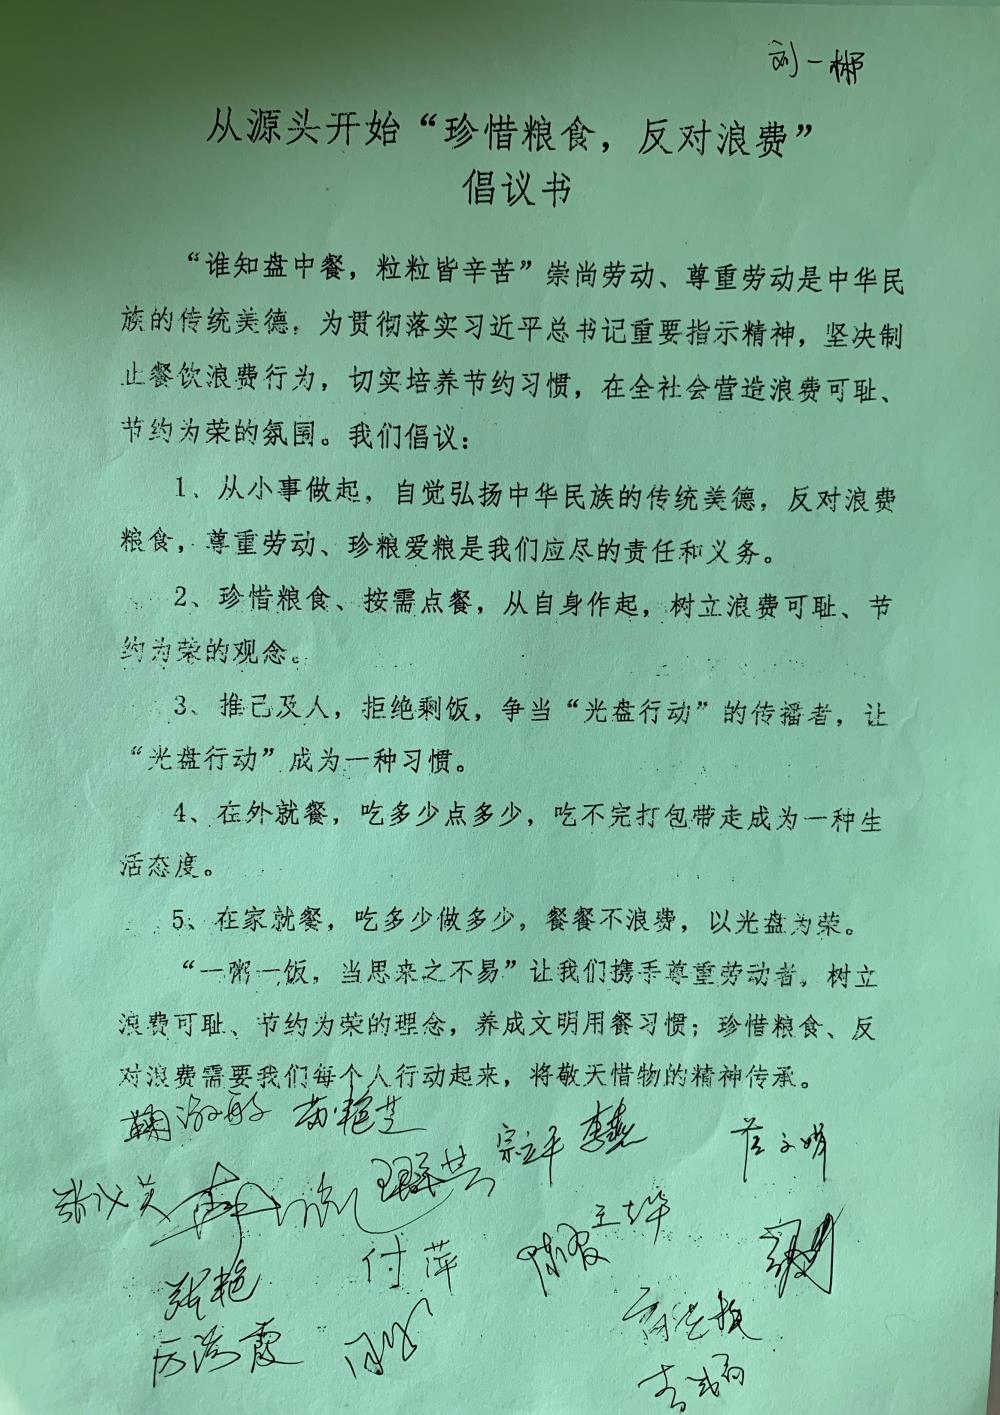 刘一彬
从源头开始“珍惜粮食，反对浪费”
倡议书
“谁知盘中餐，粒粒皆辛苦”崇尚劳动、尊重劳动是中华民
族的传统美德，为贯彻落实习近平总书记重要指示精神，坚决制
止餐饮浪费行为，切实培养节约习惯，在全社会营造浪费可耻、
节约为荣的氛围。我们倡议：
1、从小事做起，自觉弘扬中华民族的传统美德，反对浪费
粮食，尊重劳动、珍粮爱粮是我们应尽的责任和义务。
2、珍惜粮食、按需点餐，从自身作起，树立浪费可耻、节
约为荣的观念。
3、推己及人，拒绝剩饭，争当“光盘行动”的传播者，让
“光盘行动”成为一种习惯。
4、在外就餐，吃多少点多少，吃不完打包带走成为一种生
活态度。
5、在家就餐，吃多少做多少，餐餐不浪费，以光盘为荣。
“一粥一饭，当思来之不易”让我们携手尊重劳动者，树立
浪费可耻、节约为荣的理念，养成文明用餐习惯；珍惜粮食、反
对浪费需要我们每个人行动起来，将敬天惜物的精神传承。
宗立平
付萍
张艳